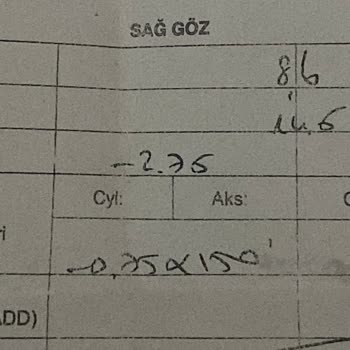 SAĞ GÖZ
86
14.5
-2.75
Cyl: Aks:
-0.75 α 150°
ADD)